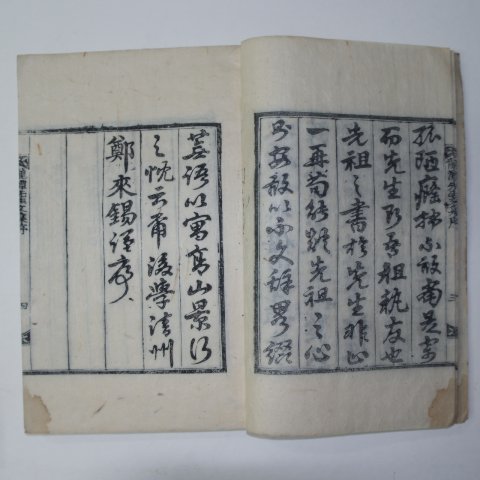 孤陋癃拙不敢當是寄
而先生乃吾祖執友也
先祖之書於先生非止
一再苟能推先祖之心
安敢以不文辭畧綴
三
蕪語以寓高山景仰
之忱云爾後學清州
鄭來錫謹序
四